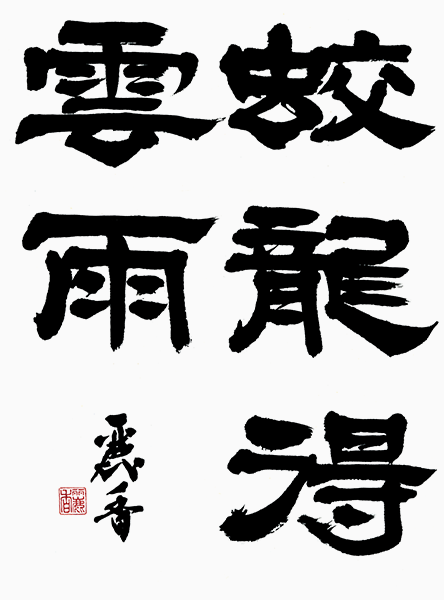 蛟龍得
雲雨